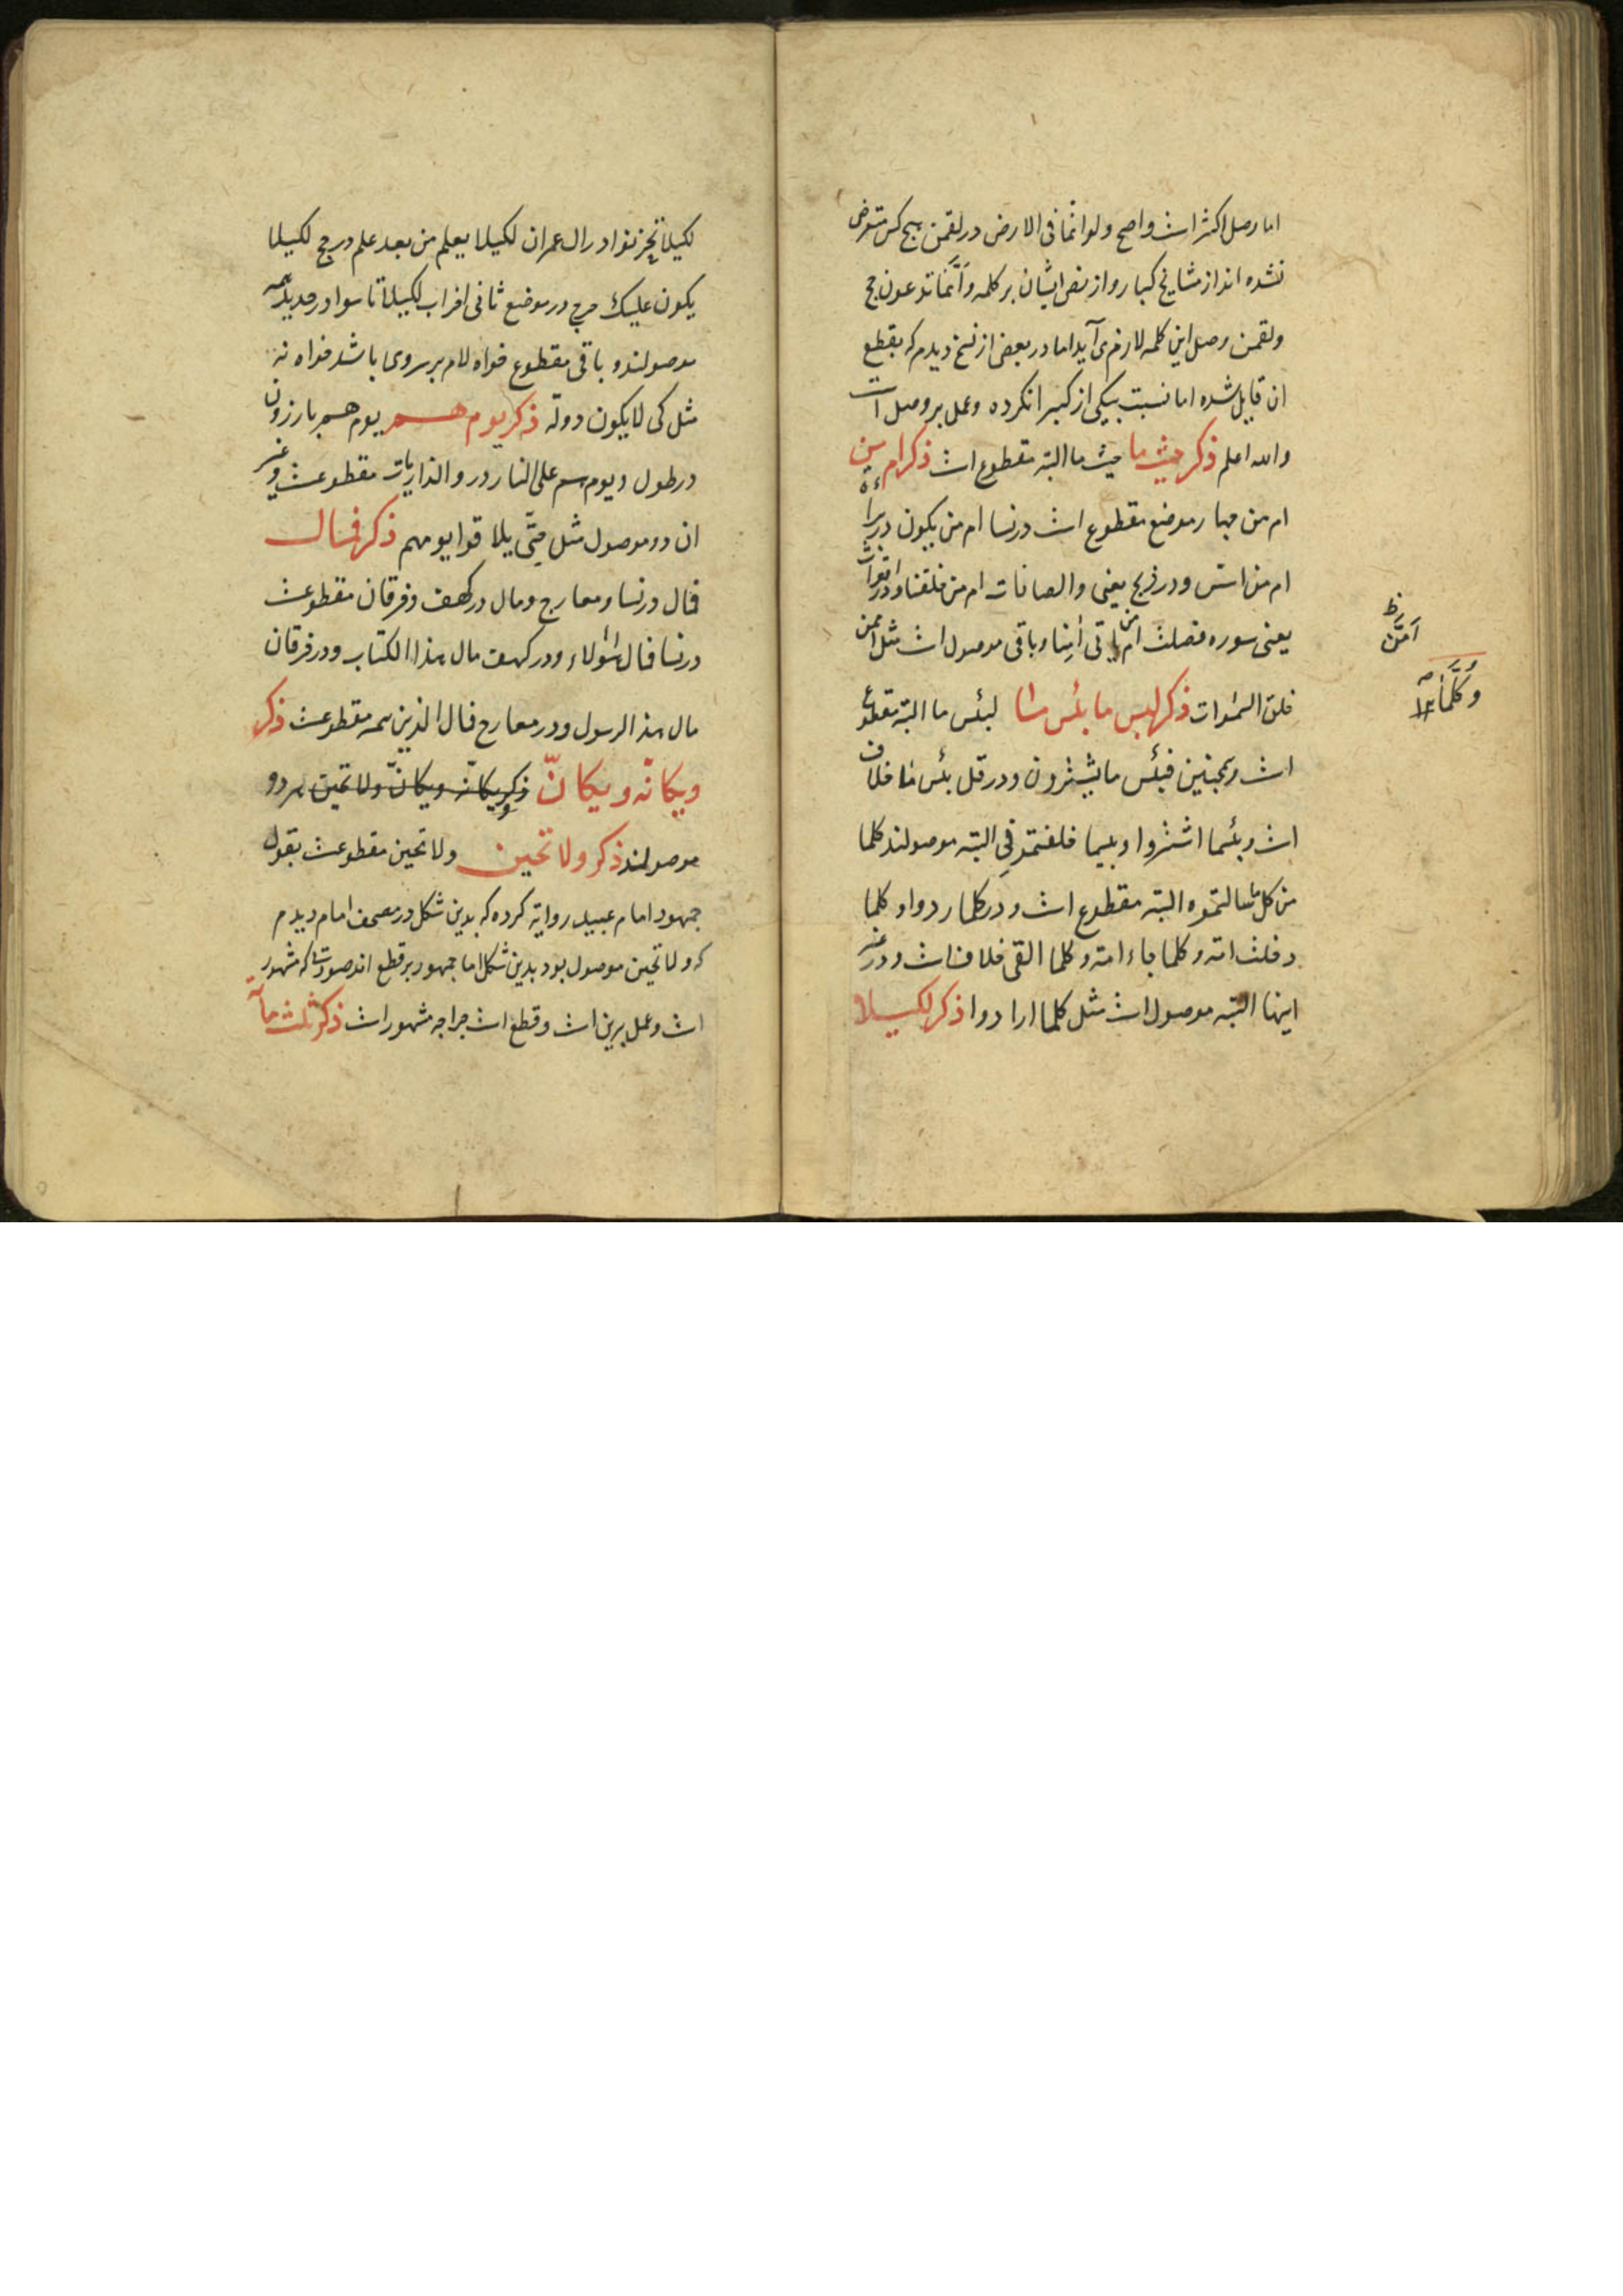 اما وصل اکثر است واصح ولو انّما فی الارض در لقمن هیچ کس متعرض
نشده اند از مشایخ کبار و از نص ایشان بر کلمه وَاَنَّمَا تدعون حج
ولقمن وصل این کلمه لازم می آید اما در بعضی از نسخ دیدم که بقطع
ان قایل شده اما نسبت بیکی از کبرا نکرده و عمل بر وصل است
والله اعلم ذکر حیث ما حیث ما البته مقطوع است ذکر ام من
ام من چهار موضع مقطوع است در نسا ام من یکون در براءة
ام من اسس و در ذبح یعنی والصافات ام من خلقنا و در اقوات
یعنی سوره فصلت ام من یاتی اٰمِنا و باقی موصول است مثل امّن
خلق السموات ذکر لبس ما بئس ما لبئس ما البته مقطوع
است و همچنین فبئس ما یشترون و در قل بئس ما خلاف
است و بئسما اشتروا و بیسما خلفتمونی البته موصولند کلما
من کل ما سالتموه البته مقطوع است و در کلما ردوا و کلما
دخلت امّة و کلما جاء امة و کلما القی خلاف است و در غیر
اینها البته موصول است مثل کلما ارادوا ذکر لکیلا
اَمَّنْ
وَكُلَّمَا
لکیلا تحزنوا در ال عمران لکیلا یعلم من بعد علم در حج لکیلا
یکون علیک حرج در موضع ثانی احزاب لکیلا تاسوا در حدید همه
موصولند و باقی مقطوع خواه لام بر سر وی باشد خواه نه
مثل کی لا یکون دولة ذکر یوم هم یوم هم بارزون
در طول و یوم هم علی النار در والذاریات مقطوعست و غیر
ان دو موصول مثل حتّی یلاقوا یومهم ذکر فمال
فمال در نسا و معارج و مال در کهف و فرقان مقطوعست
در نسا فمال هٰؤلاء و در کهف مال هذا الکتاب و در فرقان
مال هذا الرسول و در معارج فمال الذین همه مقطوعست ذکر
ویکانّه ویکانّ ذکر ویکانّه ویکانّ ولا تحین هر دو
موصولند ذکر ولا تحین ولا تحین مقطوعست بقول
جمهور امام عبید روایة کرده که بدین شکل در مصحف امام دیدم
که ولا تحین موصول بود بدین شکل اما جمهور بر قطع اند که مشهور
است و عمل برین است و قطع است جراجه مشهور است ذکر ثلث مآئة